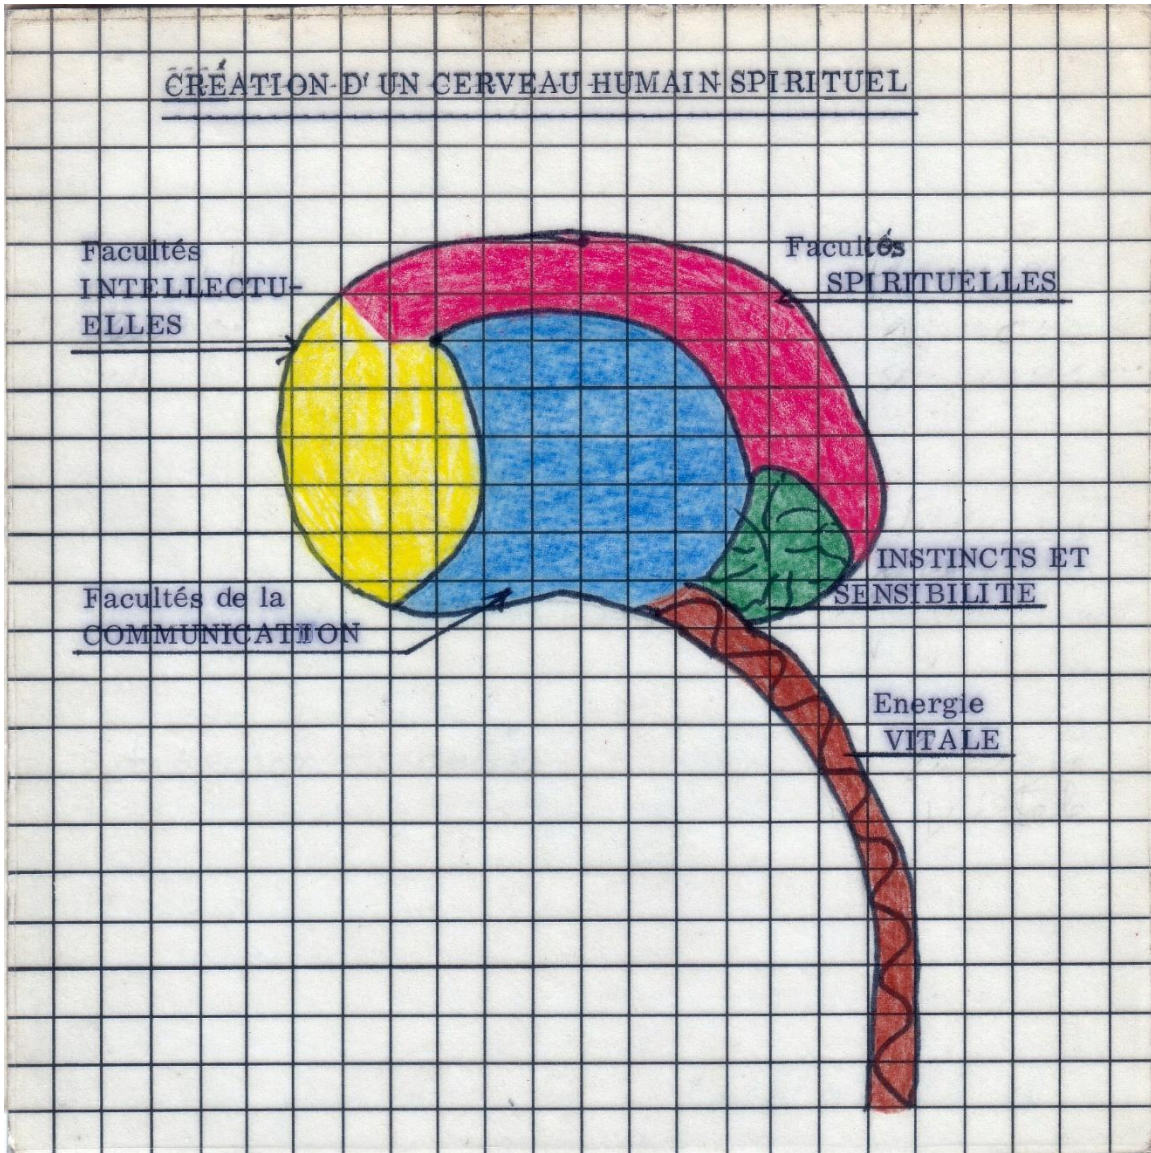 CRÉATION D'UN CERVEAU HUMAIN SPIRITUEL
Facultés
INTELLECTU-
ELLES
Facultés
SPIRITUELLES
INSTINCTS ET
SENSIBILITE
Facultés de la
COMMUNICATION
Energie
VITALE